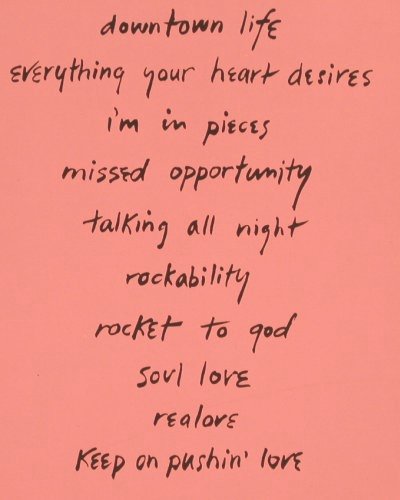 downtown life
everything your heart desires
i'm in pieces
missed opportunity
talking all night
rockability
rocket to god
soul love
realove
keep on pushin' love